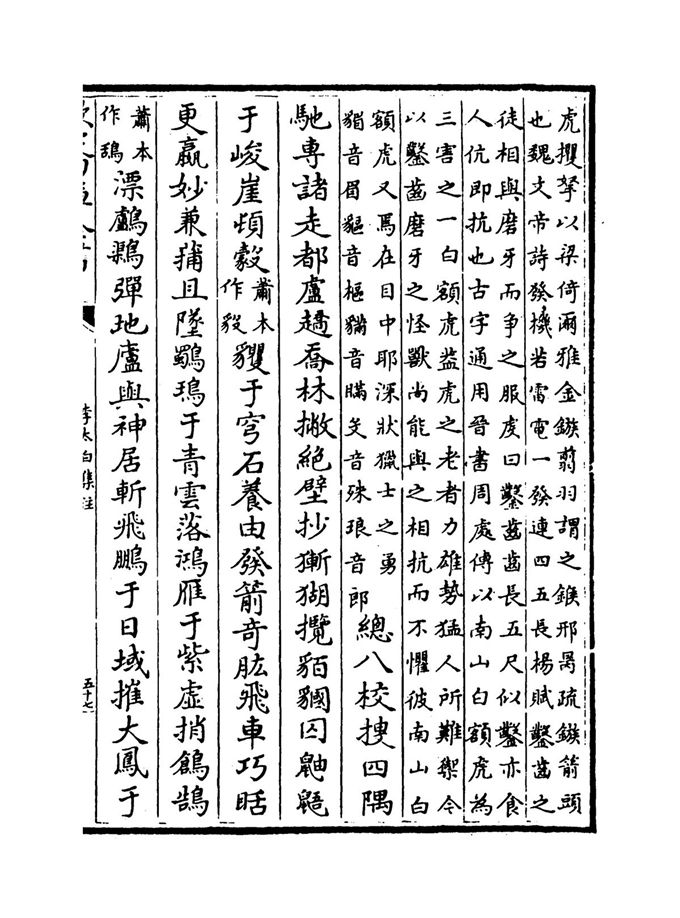 虎攫拏以梁倚爾雅金鏃翦羽謂之鍭邢昺疏鏃箭頭
也魏文帝詩發機若雷電一發連四五長楊賦鑿齒之
徒相與磨牙而争之服虔曰鑿齒齒長五尺似鑿亦食
人伉即抗也古字通用晉書周處傳以南山白額虎為
三害之一白額虎葢虎之老者力雄勢猛人所難禦今
以鑿齒磨牙之怪獸尚能與之相抗而不懼彼南山白
額虎又焉在目中耶深狀獵士之勇
音眉貙音樞音瞞殳音殊琅音郎
總八校搜四隅
馳專諸走都盧趫喬林撇絶壁抄獑猢攬貊囚鼬鼯
于峻崖頓縠蕭本作㲉貜于穹石養由發箭奇肱飛車巧聒
更羸妙兼蒱且墜鸀鳿于青雲落鴻雁于紫虚捎鶬鵠
蕭本作鴇漂鸕彈地廬與神居斬飛鵬于日域摧大鳳于
李太白集注
五十七